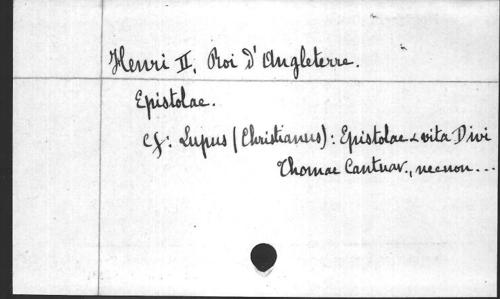 Henri II, Roi d'Angleterre.
Epistolae.
Cf: Lupus (Christianus): Epistolae & vita Divi
Thomae Cantuar., necnon...